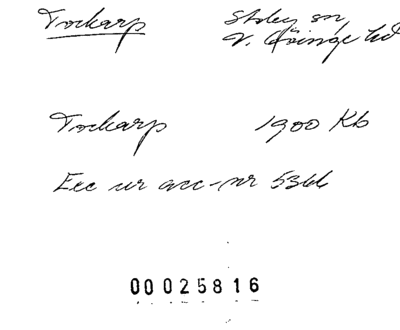 Tockarp Stoby sn,
V. Göinge hd
Tockarp 1900 Kb
Exc ur acc-nr
00025816